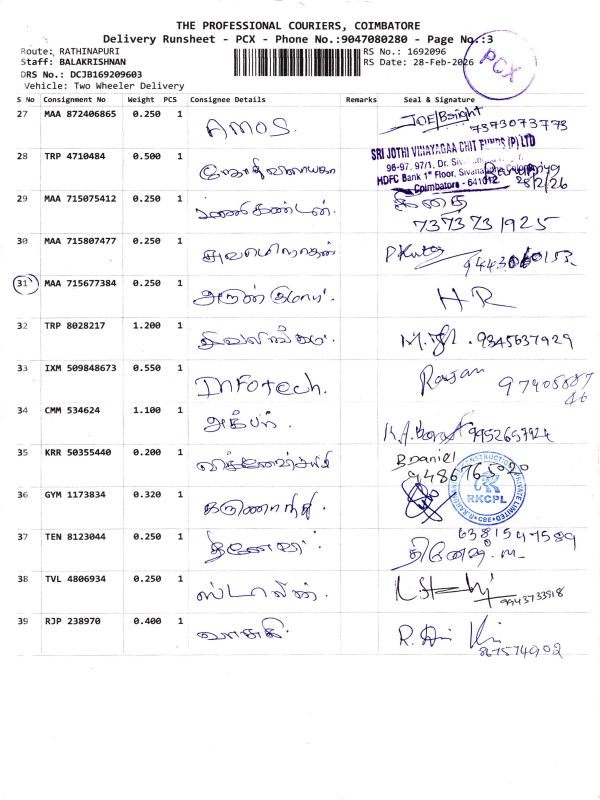 THE PROFESSIONAL COURIERS, COIMBATORE
Delivery Runsheet - PCX - Phone No.:9047080280 - Page No.:3
Route: RATHINAPURI RS No.: 1692096
Staff: BALAKRISHNAN RS Date: 28-Feb-2026
DRS No.: DCJB169209603
Vehicle: Two Wheeler Delivery
PCX
S No Consignment No Weight PCS Consignee Details Remarks Seal & Signature
27 MAA 872406865 0.250 1 AMOS. JOE/Bright
7373073773
28 TRP 4710484 0.500 1
SRI JOTHI VINAYAGAA CHIT FUNDS (P) LTD
96-97, 97/1, Dr.
HDFC Bank 1st Floor,
Coimbatore - 641012
28/2/26
29 MAA 715075412 0.250 1 மணிகண்டன்.
7373731925
30 MAA 715807477 0.250 1
31 MAA 715677384 0.250 1 அருண்குமார். HR
32 TRP 8028217 1.200 1 சிவலிங்கம். 9345637929
33 IXM 509848673 0.550 1 INFOtech. Rajan 97405887
46
34 CMM 534624 1.100 1 அக்பர். 9952657924
35 KRR 50355440 0.200 1 B Daniel
9486765020
36 GYM 1173834 0.320 1 கருணாநிதி.
RKCPL
CBE
37 TEN 8123044 0.250 1 தினேஷ். 6381547589
தினேஷ்
38 TVL 4806934 0.250 1 ஸ்டாலின். 9943733918
39 RJP 238970 0.400 1 வாசுகி.
867574902